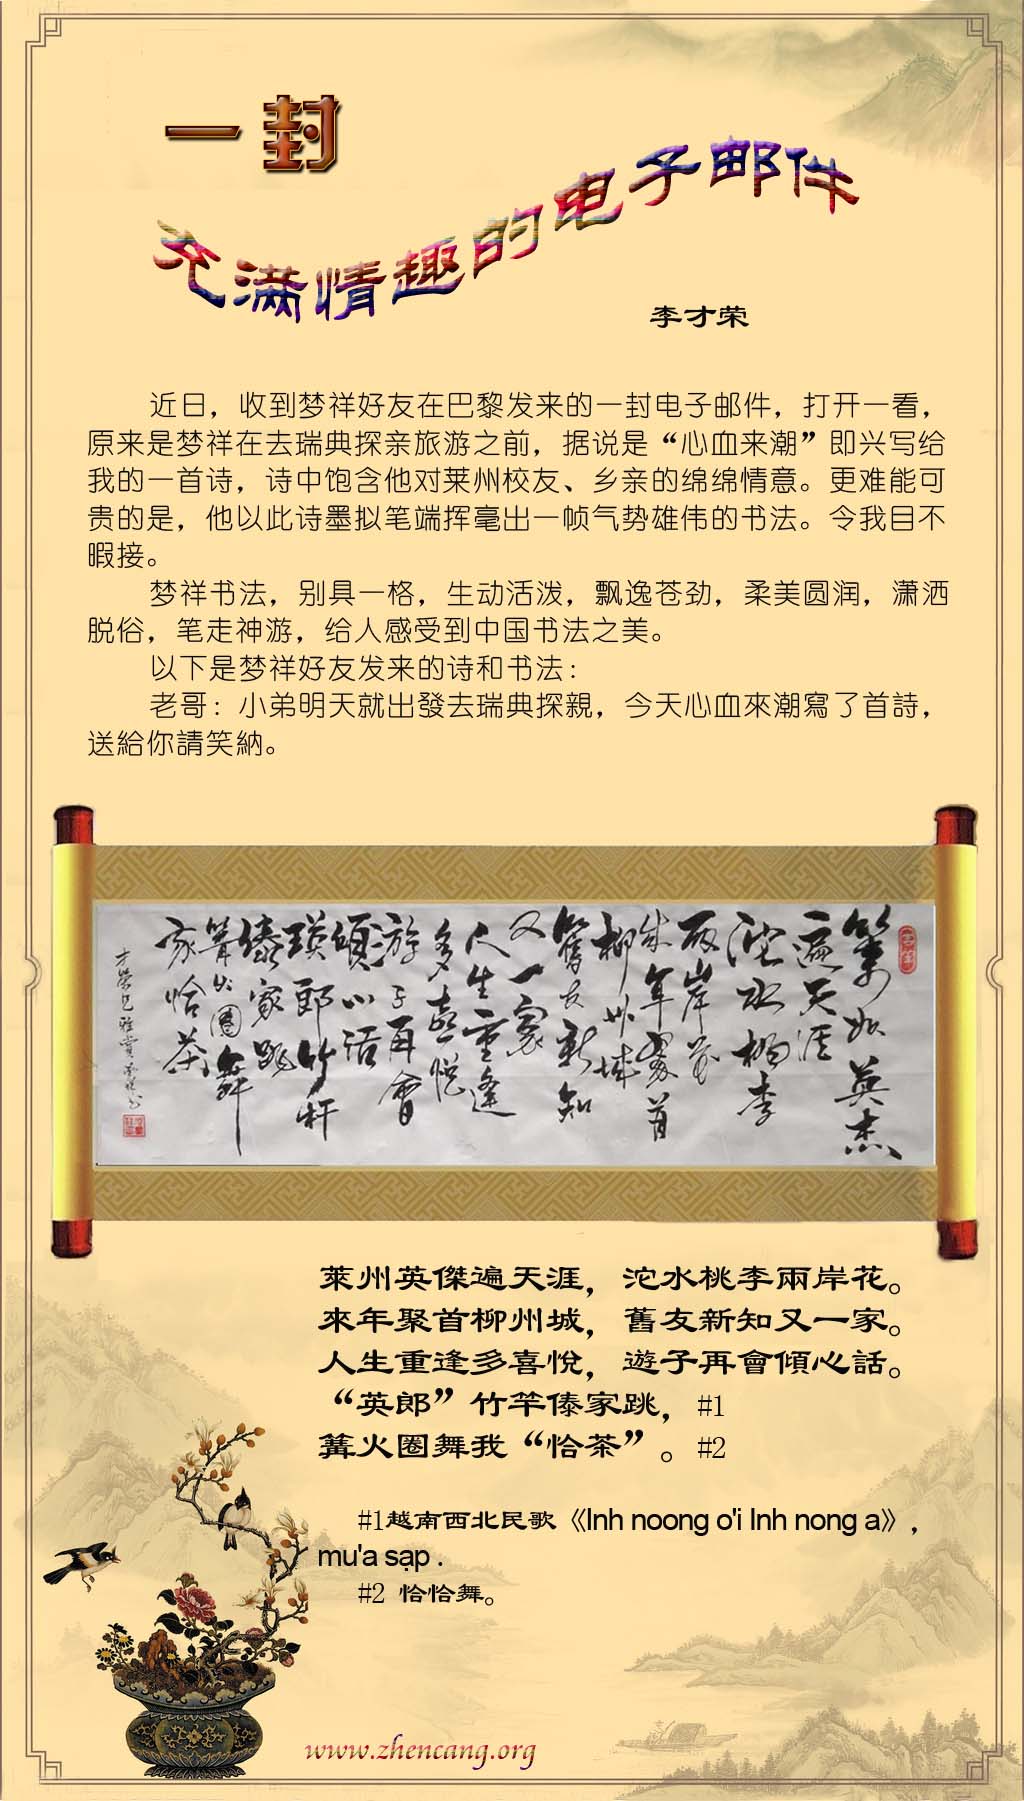 一封
充满情趣的电子邮件
李才荣
近日，收到梦祥好友在巴黎发来的一封电子邮件，打开一看，
原来是梦祥在去瑞典探亲旅游之前，据说是“心血来潮”即兴写给
我的一首诗，诗中饱含他对莱州校友、乡亲的绵绵情意。更难能可
贵的是，他以此诗墨拟笔端挥毫出一帧气势雄伟的书法。令我目不
暇接。
梦祥书法，别具一格，生动活泼，飘逸苍劲，柔美圆润，潇洒
脱俗，笔走神游，给人感受到中国书法之美。
以下是梦祥好友发来的诗和书法：
老哥：小弟明天就出發去瑞典探親，今天心血來潮寫了首詩，
送給你請笑納。
英杰
遍天涯
沱水桃李
兩岸花
來年聚首
柳州城
舊友新知
又一家
人生重逢
多喜悅
游子再會
傾心话
瑛郎竹杆
傣家跳
篝火圈舞
家恰茶
萊州英傑遍天涯，沱水桃李兩岸花。
來年聚首柳州城，舊友新知又一家。
人生重逢多喜悅，遊子再會傾心話。
“英郎”竹竿傣家跳，#1
篝火圈舞我“恰茶”。#2
#1越南西北民歌《Inh noong o'i Inh nong a》，
mu'a sạp .
#2 恰恰舞。
www.zhencang.org